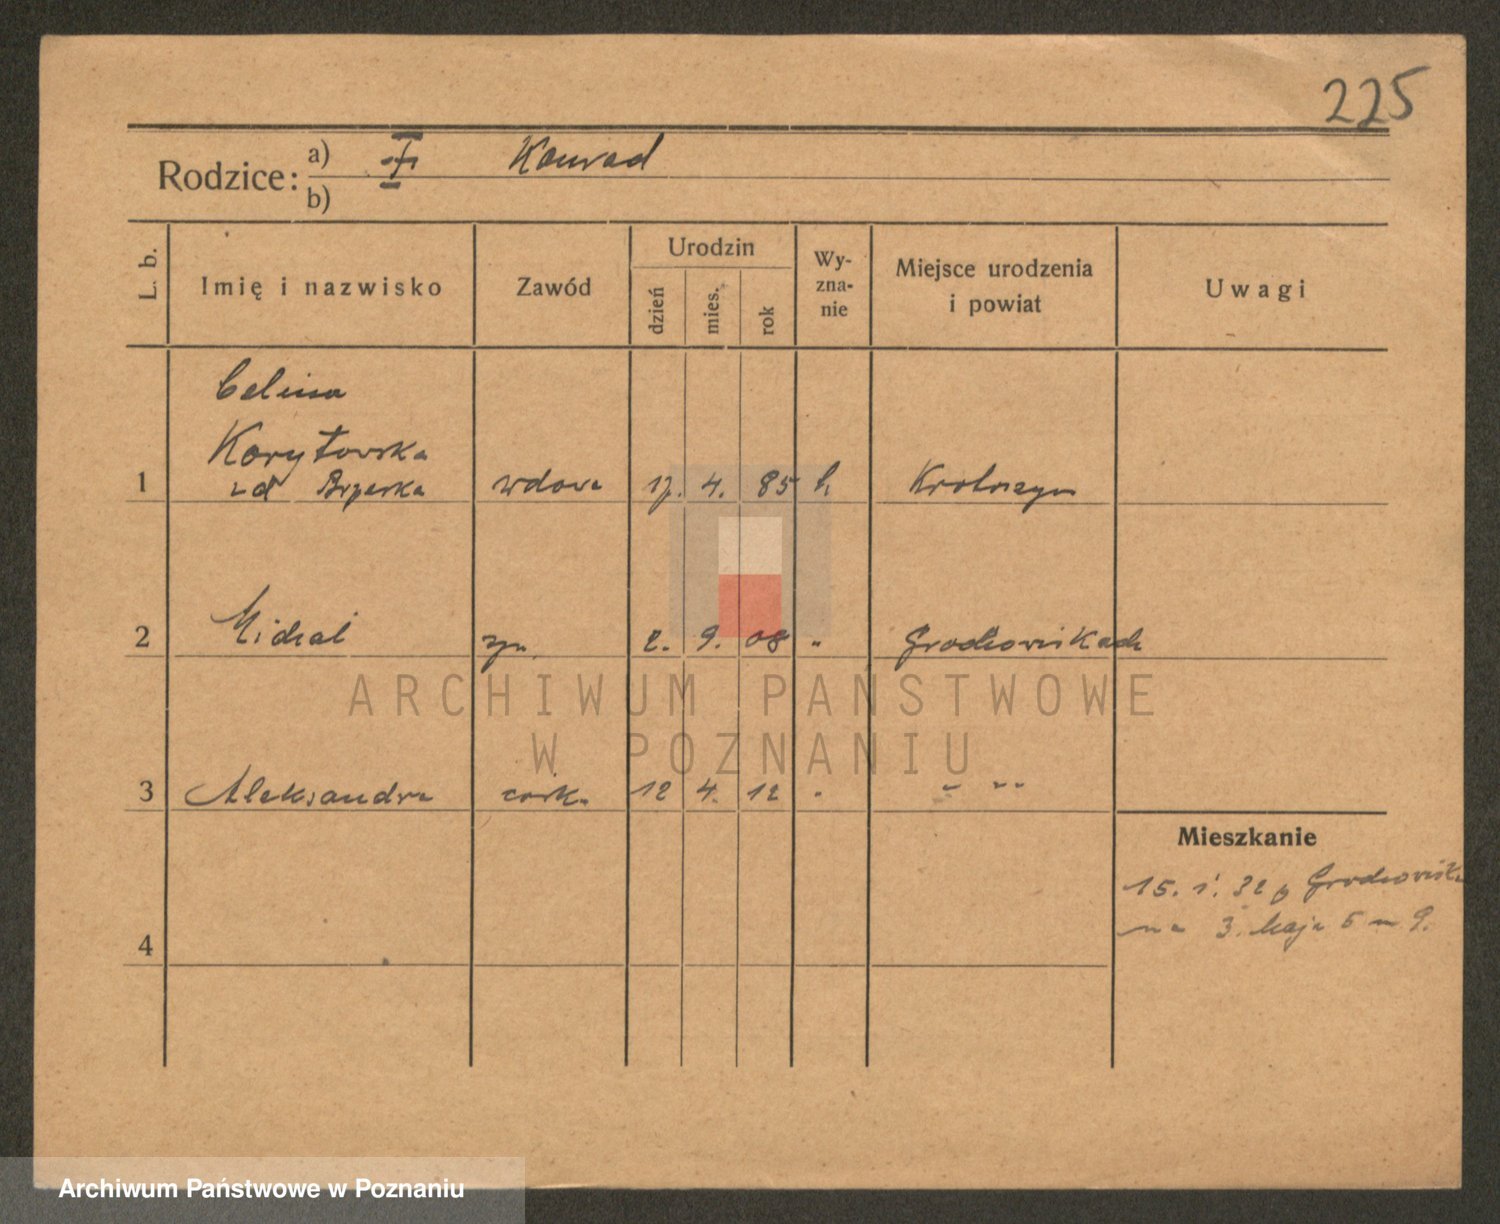 225
Rodzice: a) Konrad
b)
L. b. Imię i nazwisko Zawód Urodzin dzień mies. rok Wy-zna-nie Miejsce urodzenia i powiat Uwagi
Celina
Korytowska
1 zd wdowa 17. 4. 85 k. Krotoszyn
2 Michał syn 2. 9. 08 " Grochowiskach
3 Aleksandra córka 12 4. 12 " " "
Mieszkanie
15. 1. 32 z Grochowisk
na 3. Maja 5 m 9.
4
ARCHIWUM PAŃSTWOWE
W POZNANIU
Archiwum Państwowe w Poznaniu